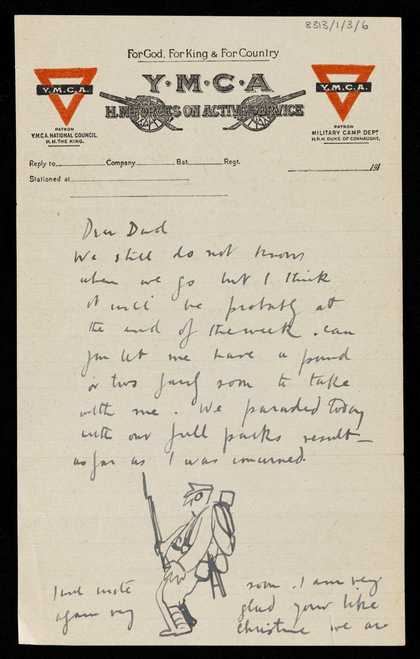 8313/1/3/6
For God, For King & For Country
Y.M.C.A
H.M. FORCES ON ACTIVE SERVICE
Y.M.C.A.
PATRON
Y.M.C.A. NATIONAL COUNCIL.
H.M. THE KING.
Y.M.C.A.
PATRON
MILITARY CAMP DEPT
H.R.H. DUKE OF CONNAUGHT.
Reply to Company Bat. Regt. 191
Stationed at
Dear Dad
We still do not know
when we go but I think
it will be probably at
the end of the week. can
you let me have a pound
or two fairly soon to take
with me. We paraded today
with our full packs result—
as far as I was concerned.
I will write soon. I am very
again very glad you like
Christine we are